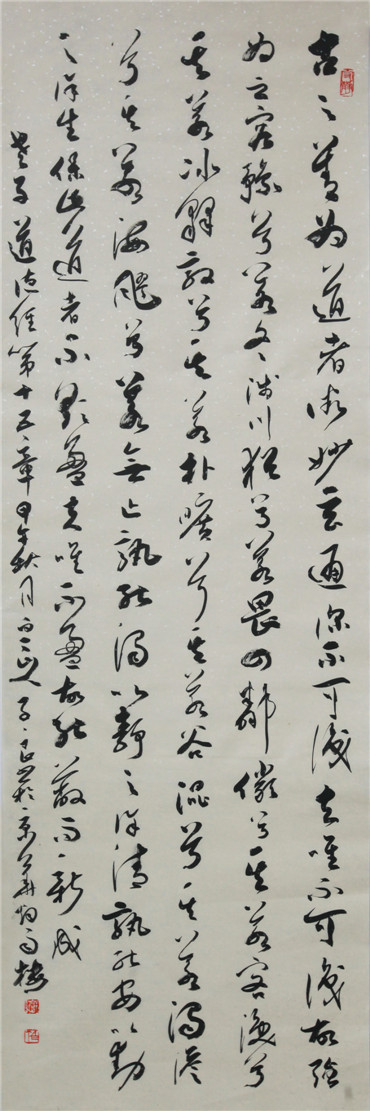 古之善为道者微妙玄通深不可识夫唯不可识故强
为之容豫兮若冬涉川犹兮若畏四邻俨兮其若客涣兮
其若冰释敦兮其若朴旷兮其若谷混兮其若浊澹
兮其若海飂兮若无止孰能浊以静之徐清孰能安以动
之徐生保此道者不欲盈夫唯不盈故能蔽而新成
老子道德经第十五章甲午秋月